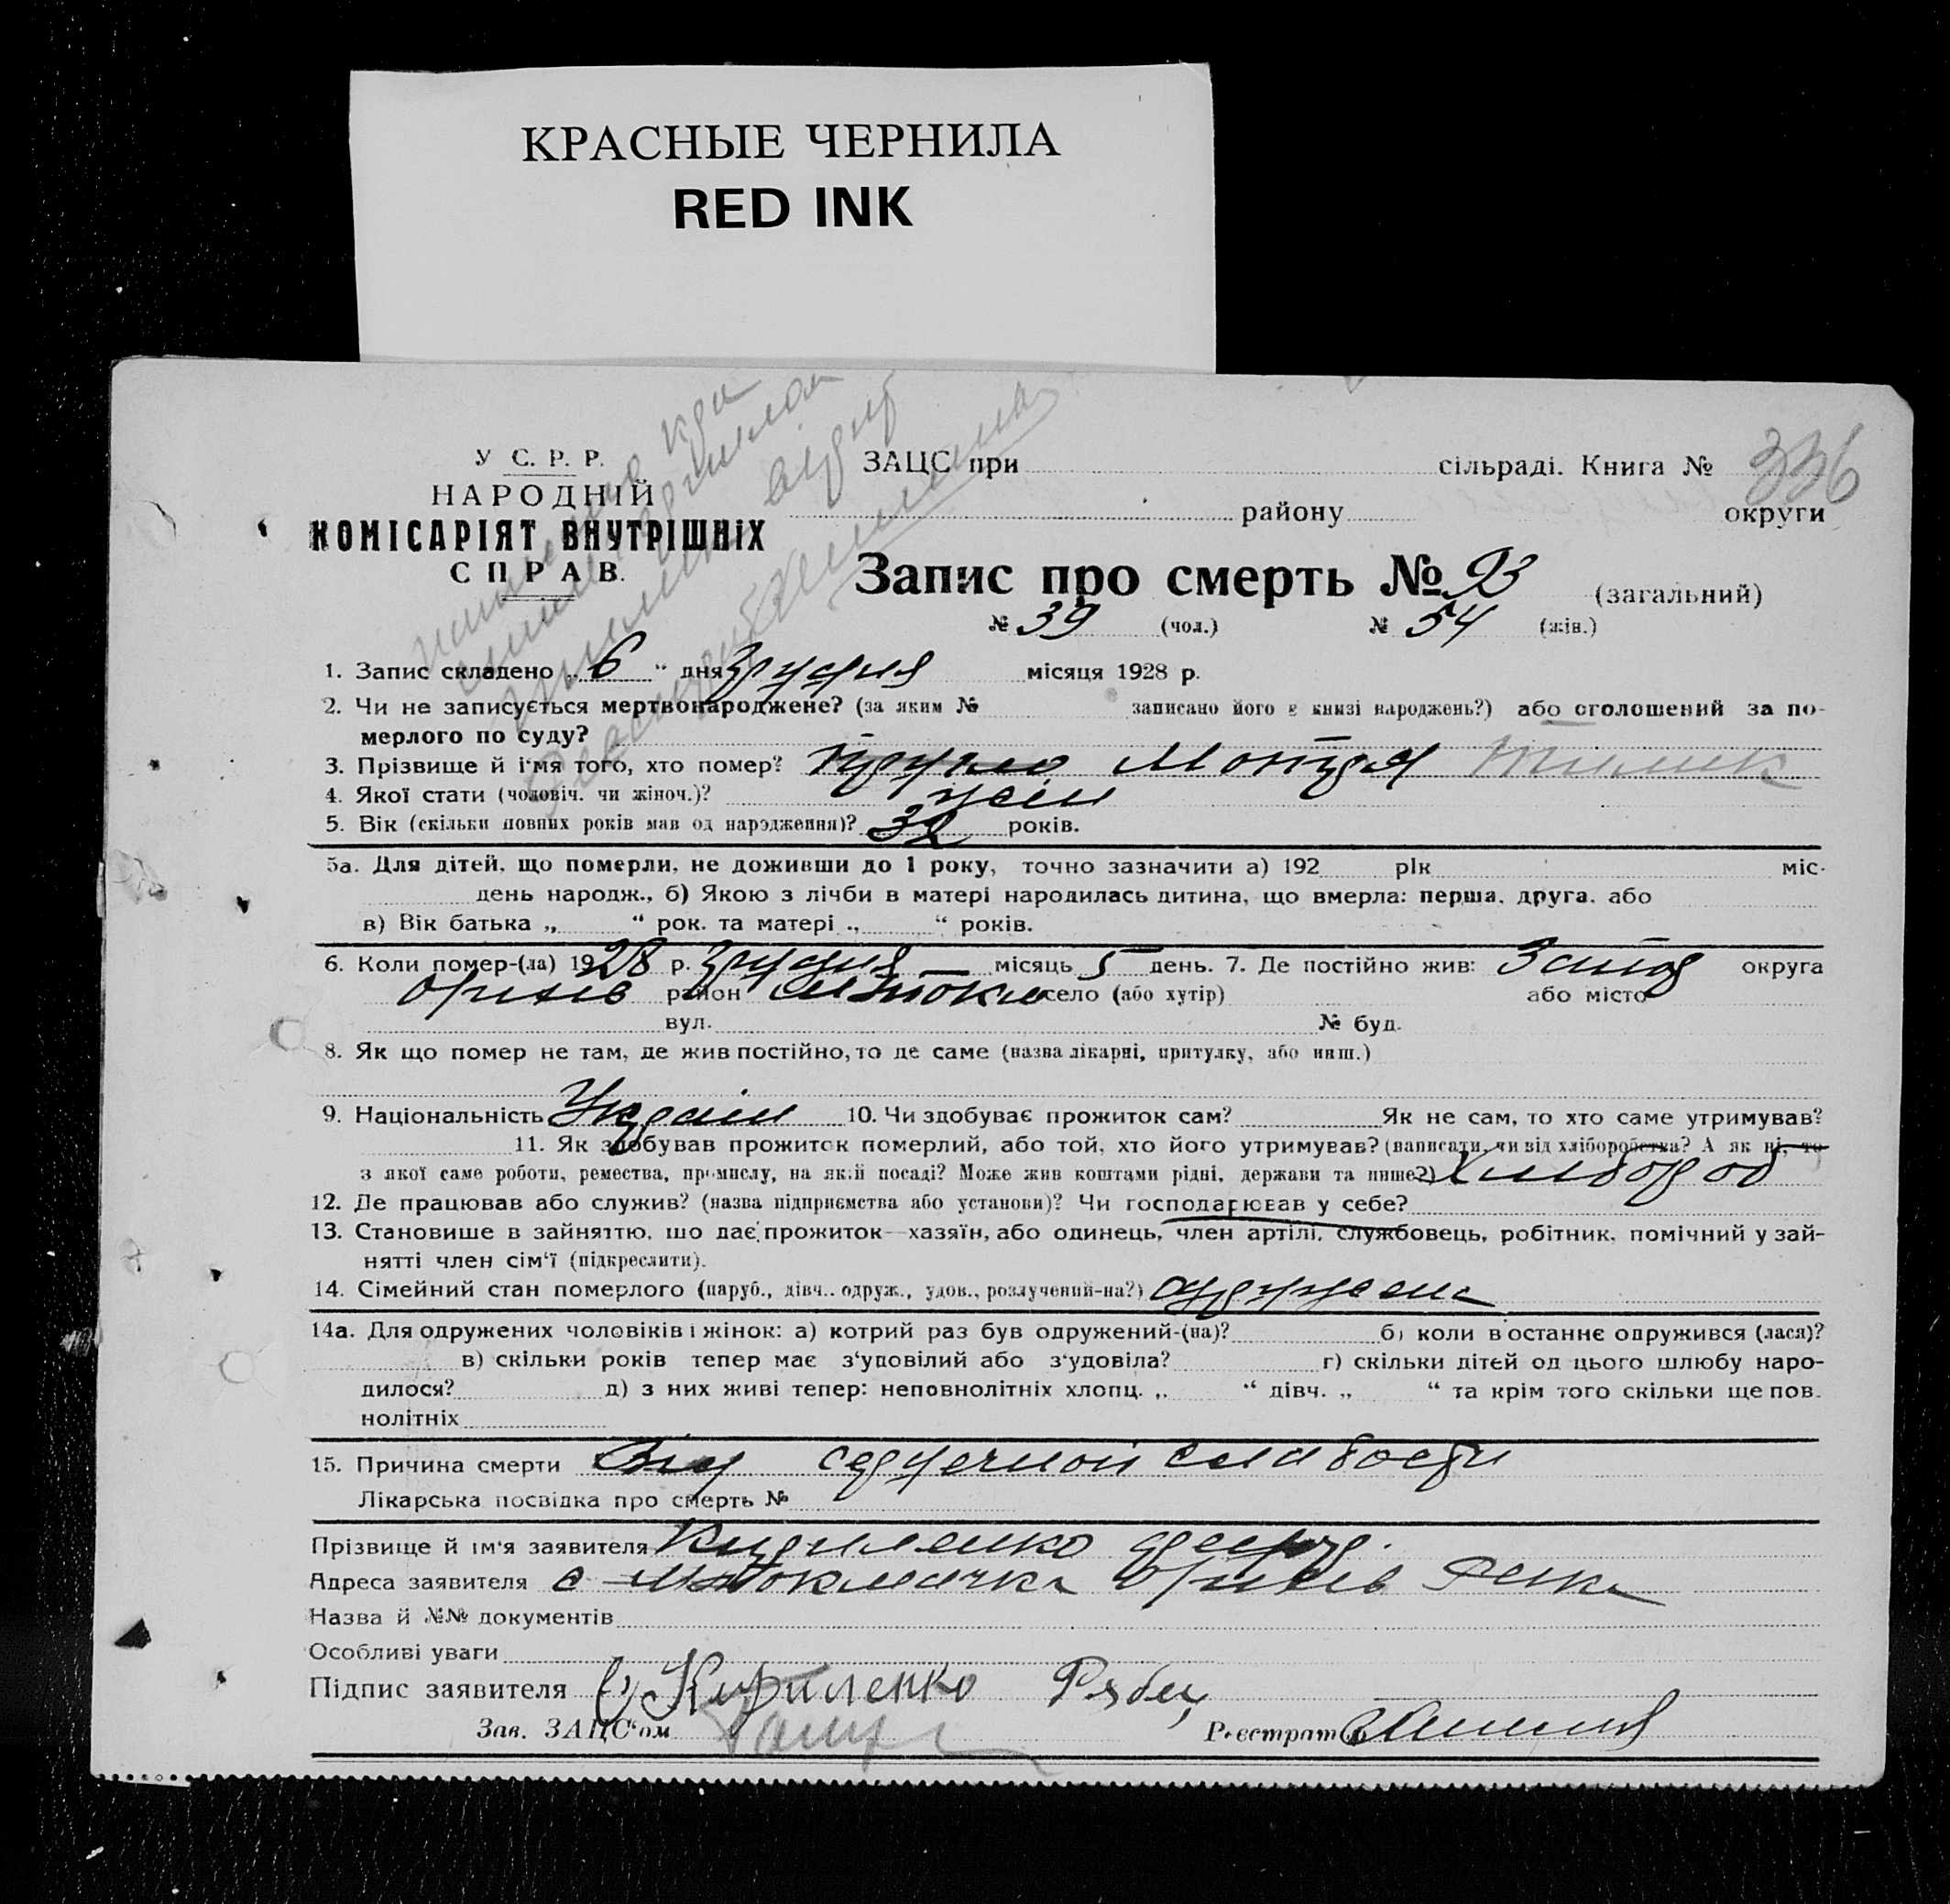 КРАСНЫЕ ЧЕРНИЛА
RED INK
У С. Р. Р.
НАРОДНІЙ
КОМІСАРІЯТ ВНУТРІШНІХ
СПРАВ.
ЗАЦС при сільраді. Книга № 336
району округи
Запис про смерть № 93 (загальний)
№ 39 (чол.) № 54 (жін.)
1. Запис складено „ 6 “ дня грудня місяця 1928 р.
2. Чи не записується мертвонароджене? (за яким № записано його в книзі народжень?) або оголошений за по-
мерлого по суду?
3. Прізвище й і'мя того, хто помер?
4. Якої стати (чоловіч. чи жіноч.)? жін
5. Вік (скільки повних років мав од народження)? 32 років.
5а. Для дітей, що померли, не доживши до 1 року, точно зазначити а) 192 рік міс.
день народж., б) Якою з лічби в матері народилась дитина, що вмерла: перша, друга, або
в) Вік батька „ “ рок. та матері „ “ років.
6. Коли помер-(ла) 1928 р. грудня місяць 5 день. 7. Де постійно жив: Запор округа
Оріхів район село (або хутір) або місто
вул. № буд.
8. Як що помер не там, де жив постійно, то де саме (назва лікарні, притулку, або инш.)
9. Національність Україн 10. Чи здобуває прожиток сам? Як не сам, то хто саме утримував?
11. Як здобував прожиток померлий, або той, хто його утримував? (написати, чи від хліборобства? А як ні, то
з якої саме роботи, ремества, промислу, на якій посаді? Може жив коштами рідні, держави та инше?) хлібороб
12. Де працював або служив? (назва підприємства або установи)? Чи господарював у себе?
13. Становише в зайняттю, шо дає прожиток—хазяїн, або одинець, член артілі, службовець, робітник, помічний у зай-
нятті член сім'ї (підкреслити).
14. Сімейний стан померлого (паруб., дівч.. одруж., удов., розлучений-на?) одружена
14а. Для одружених чоловіків і жінок: а) котрий раз був одружений-(на)? б) коли востаннє одружився (лася)?
в) скільки років тепер має з'удовілий або з'удовіла? г) скільки дітей од цього шлюбу наро-
дилося? д) з них живі тепер: неповнолітніх хлопц. „ “ дівч. „ “ та крім того скільки ще пов.
нолітніх
15. Причина смерти Від сердечної слабости
Лікарська посвідка про смерть №
Прізвище й ім'я заявителя Кириленко
Адреса заявителя с Оріхів
Назва й №№ документів
Особливі уваги
Підпис заявителя Кириленко Рябец
Зав. ЗАЦС'ом Реєстратор